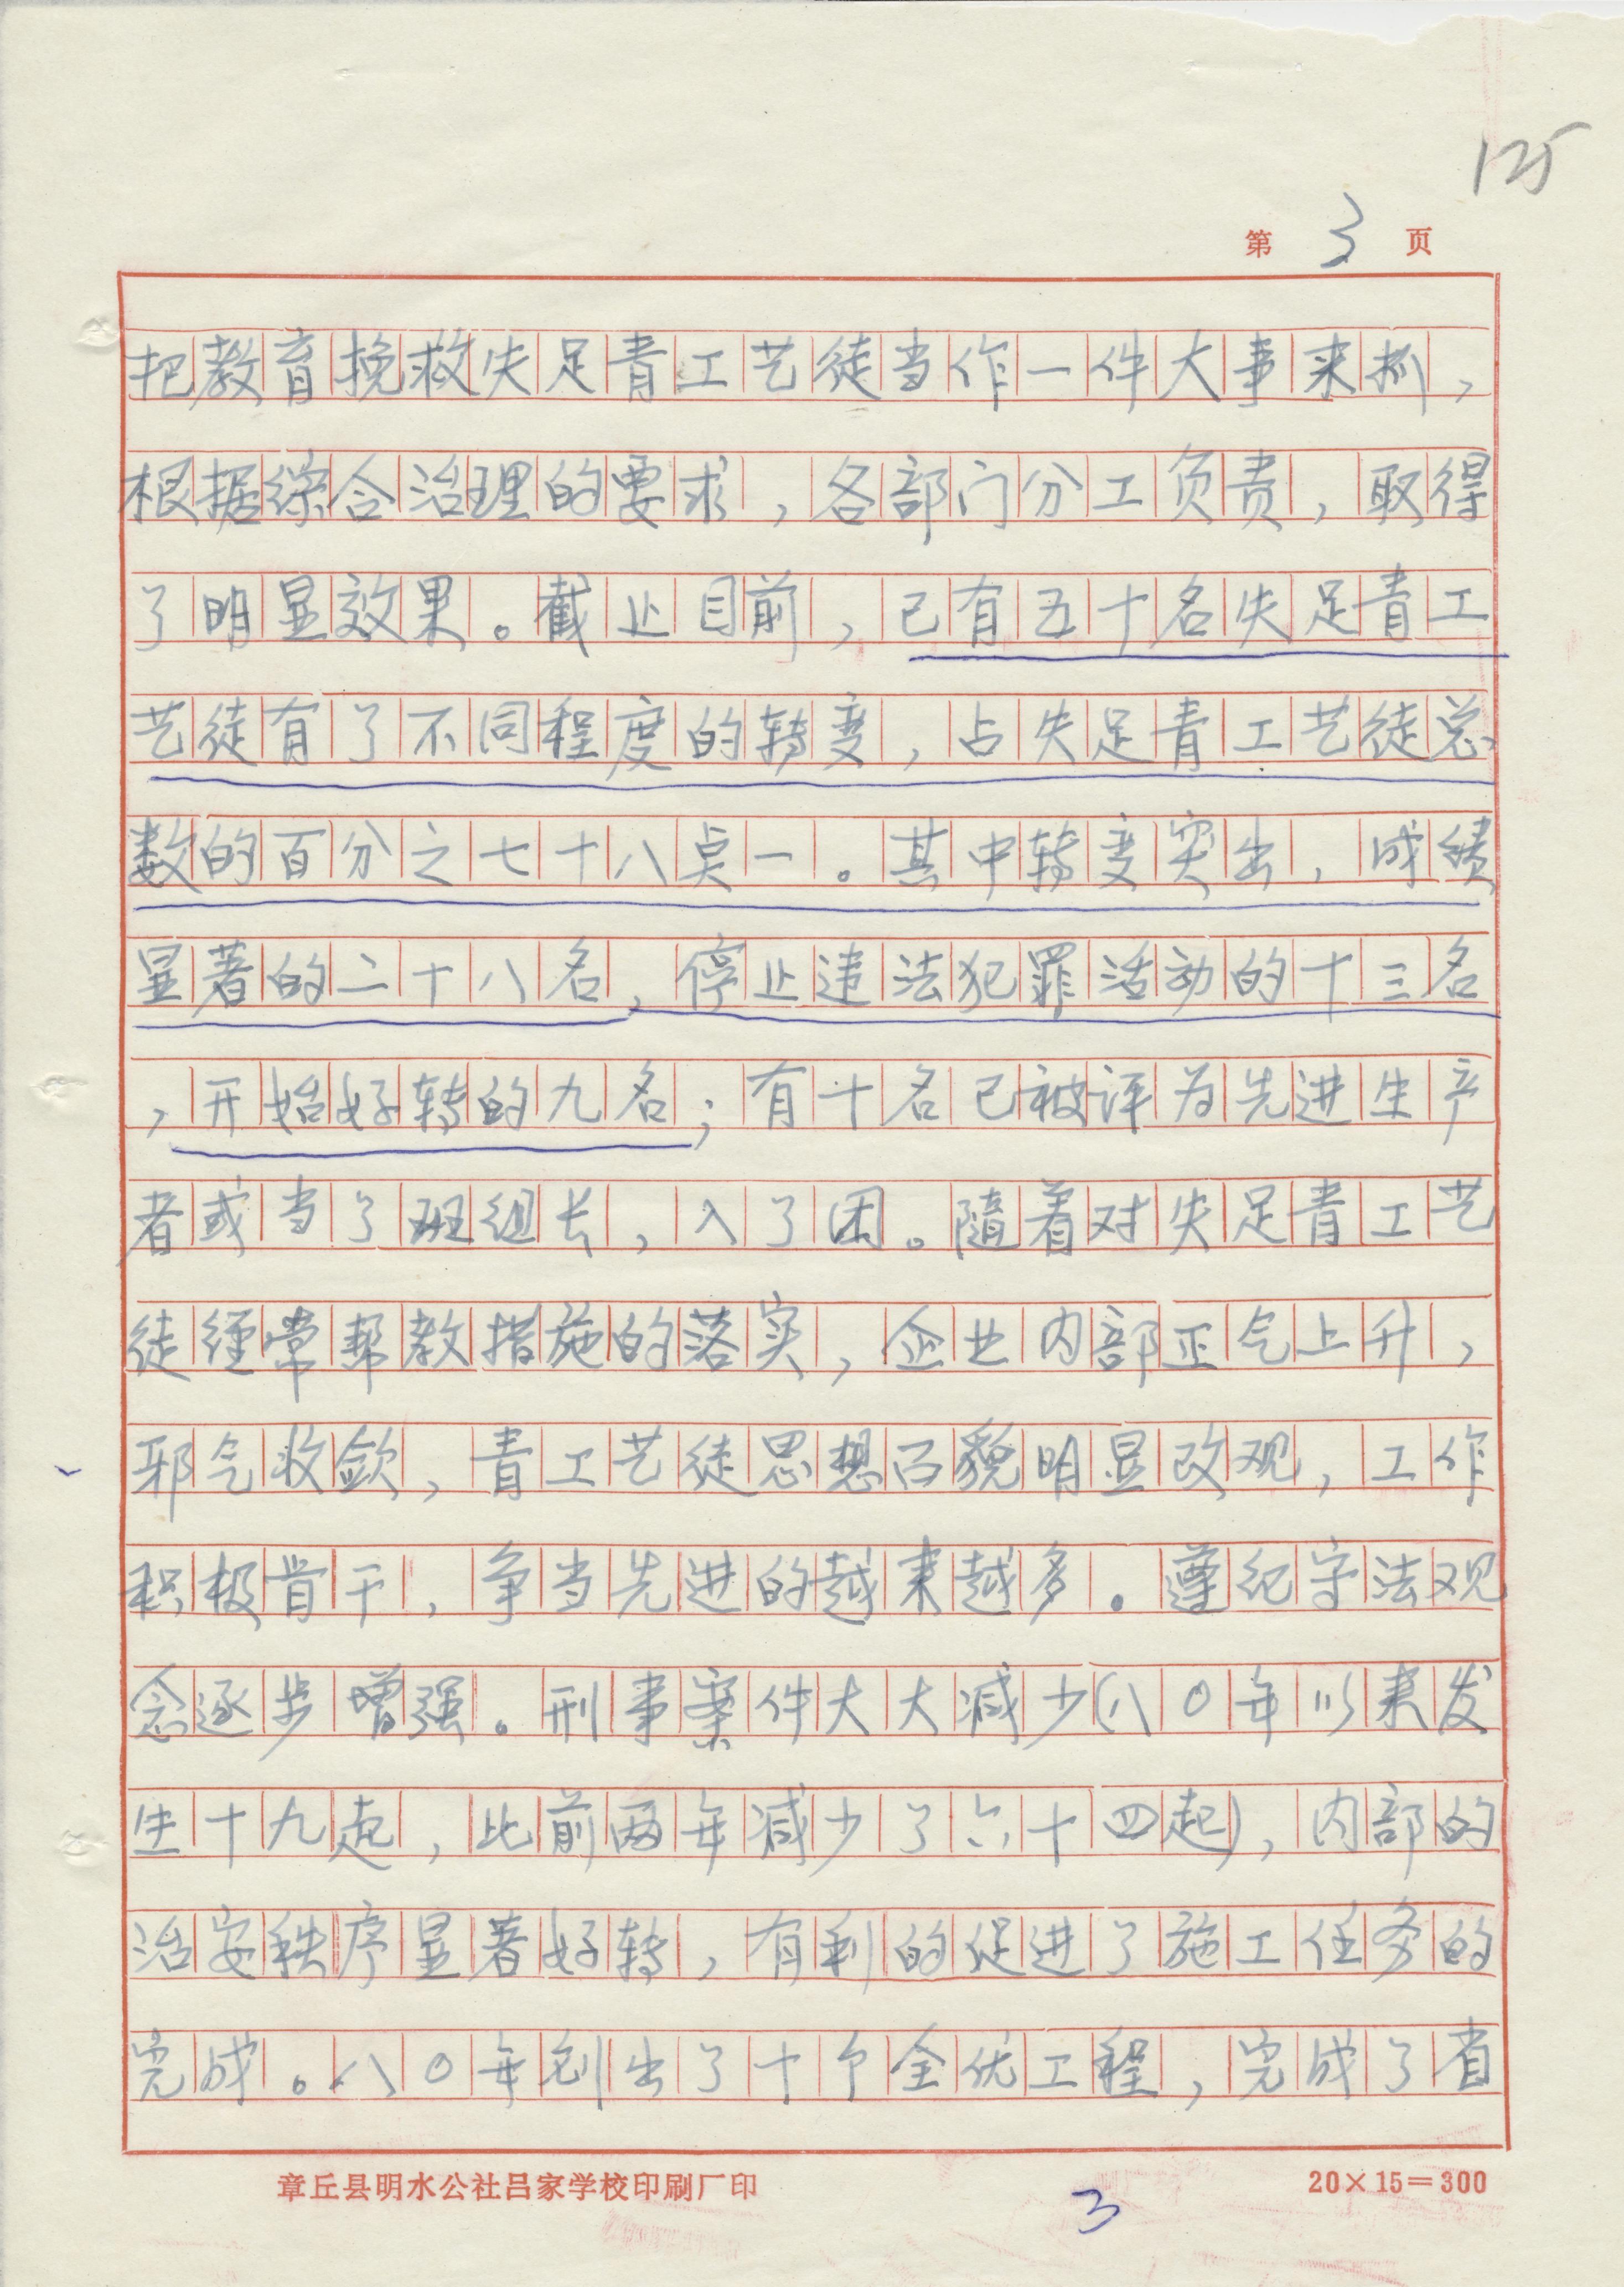 125
第 3 页
把教育挽救失足青工艺徒当作一件大事来抓，
根据综合治理的要求，各部门分工负责，取得
了明显效果。截止目前，已有五十名失足青工
艺徒有了不同程度的转变，占失足青工艺徒总
数的百分之七十八点一。其中转变突出，成绩
显著的二十八名，停止违法犯罪活动的十三名
，开始好转的九名；有十名已被评为先进生产
者或当了班组长，入了团。随着对失足青工艺
徒经常帮教措施的落实，企业内部正气上升，
邪气收敛，青工艺徒思想面貌明显改观，工作
积极肯干，争当先进的越来越多。遵纪守法观
念逐步增强。刑事案件大大减少（八〇年以来发
生十九起，比前两年减少了六十四起），内部的
治安秩序显著好转，有利的促进了施工任务的
完成。八〇年创出了十个全优工程，完成了省
章丘县明水公社吕家学校印刷厂印 20×15=300
3